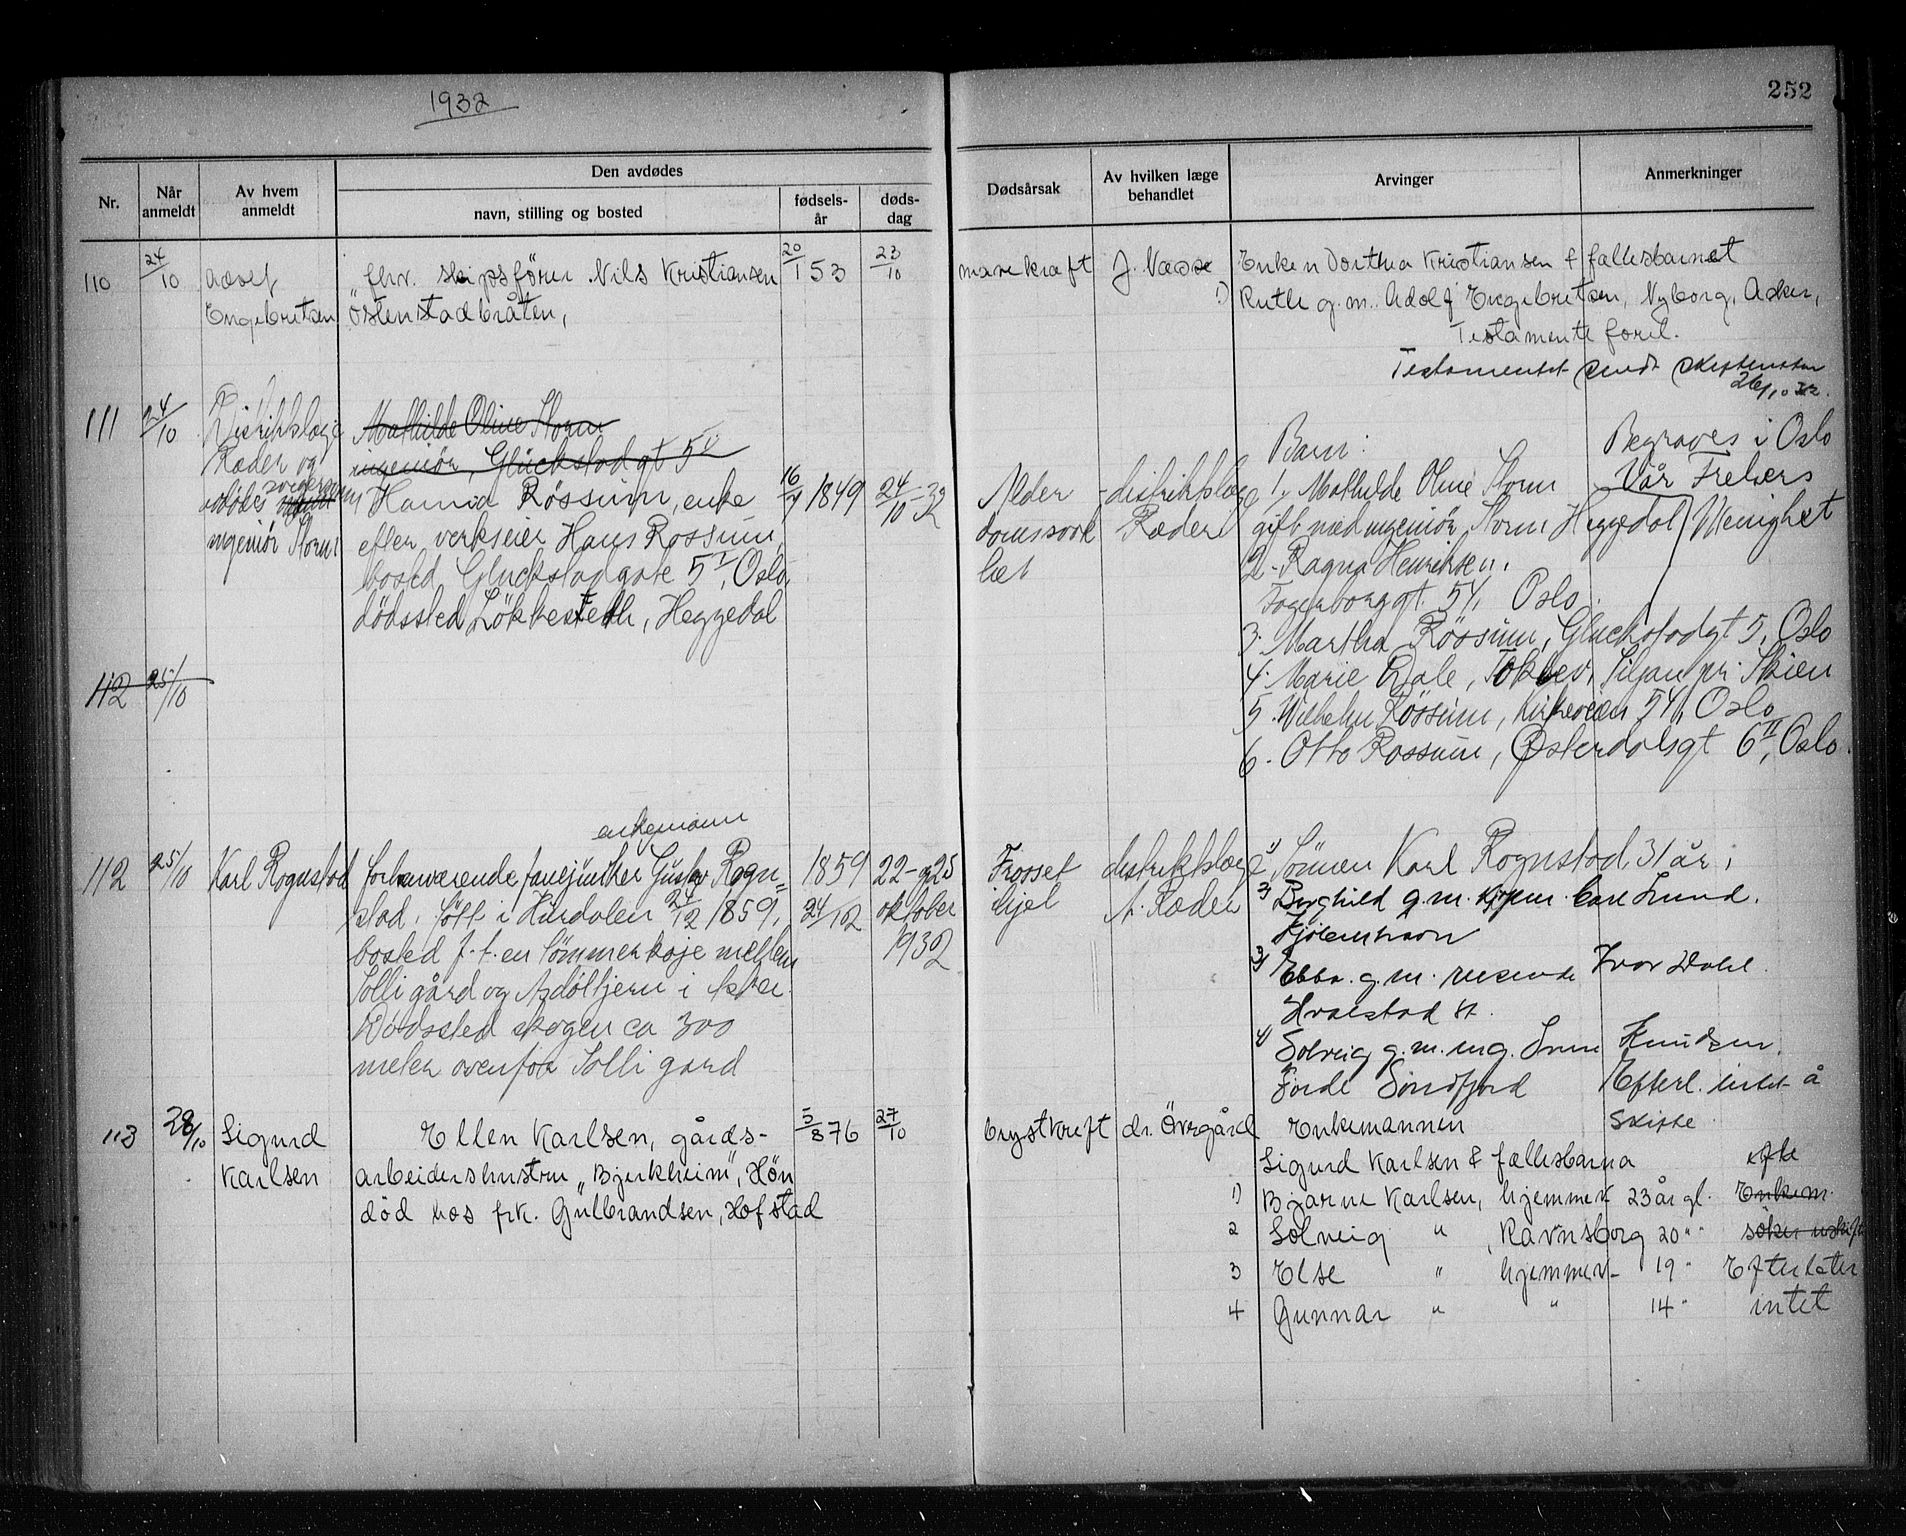 1932
252
Nr.
Når anmeldt
Av hvem anmeldt
Den avdødes
navn, stilling og bosted
fødsels-år
døds-dag
Dødsårsak
Av hvilken læge behandlet
Arvinger
Anmerkninger
110
24/10
Adolf
Engebretsen
fhv. skipsfører Nils Kristiansen
Östenstadbråten,
20/1 53
23/10
mavekræft
J. Næss
Enken Dorthea Kristiansen & fællesbarnet
1) Ruth g.m. Adolf Engebretsen, Nyborg, Asker,
Testamente forel.
Testamentet sendt skifteretten
26/10 32.
111
24/10
Distriktslæge
Ræder og
avdødes svigersønn
ingeniør Storm
Mathilde Oline Storm
ingeniør, Glückstadgt 5
Hanna Røssum, enke
efter verkseier Hans Rossum,
bosted Gluckstadgate 5 I, Oslo
dödssted Løkkesteth, Heggedal
16/7 1849
24/10-32
Alder
domssvak
het
distriktslæge
Ræder
Barn:
1, Mathilde Oline Storm
gift med ingeniör Storm Heggedal
2- Ragna Henriksen.
Fagerborggt. 54, Oslo.
3. Martha Røssum, Gluckstadgt 5, Oslo
4. Marie Dale, Siljan pr. Skien
5. Wilhelm Røssum, Kirkeveien 54, Oslo
6. Otto Rossum, Østerdalsgt 6 II, Oslo.
Begraves i Oslo
Vår Frelsers
Menighet
112
25/10
112
25/10
Karl Rognstad
enkemann
forhenværende fanejunker Gustav Rogn=
stad. född i Hurdalen 24/12 1859,
bosted f. t. en tömmerkoje mellem
Solli gård og i Asker.
Dödssted skogen ca 300
meter ovenfor Solli gard
1859
24/12
22- og 25
oktober
1932
Frosset
ihjel
distriktslæge
A. Ræder
1) Sönnen Karl Rognstad 31 år i
2) Borghild g.m. Carl Lund.
Kjöbenhavn
3) Ebba g.m. reisende Ivar Dahl
Hvalstad st.
4) Solveig g.m. ing. Knudsen.
Förde Söndfjord
Efterl. intet å
skifte
113
28/10
Sigurd
Karlsen
Ellen Karlsen, gårds-
arbeidershustru "Bjerkheim", Høn
död hos frk. Gulbrandsen, Hofstad
5/8 76
27/10
brystkreft
dr. Övrgård
Enkemannen
Sigurd Karlsen & fællesbarna
1) Bjarne Karlsen, hjemmev 23 år gl.
2 Solveig " , Ravnsborg 20 " "
3 Else " hjemmev- 19 "
4 Gunnar " " 14 "
Enkem.
söker uskifte
Efterlater
intet